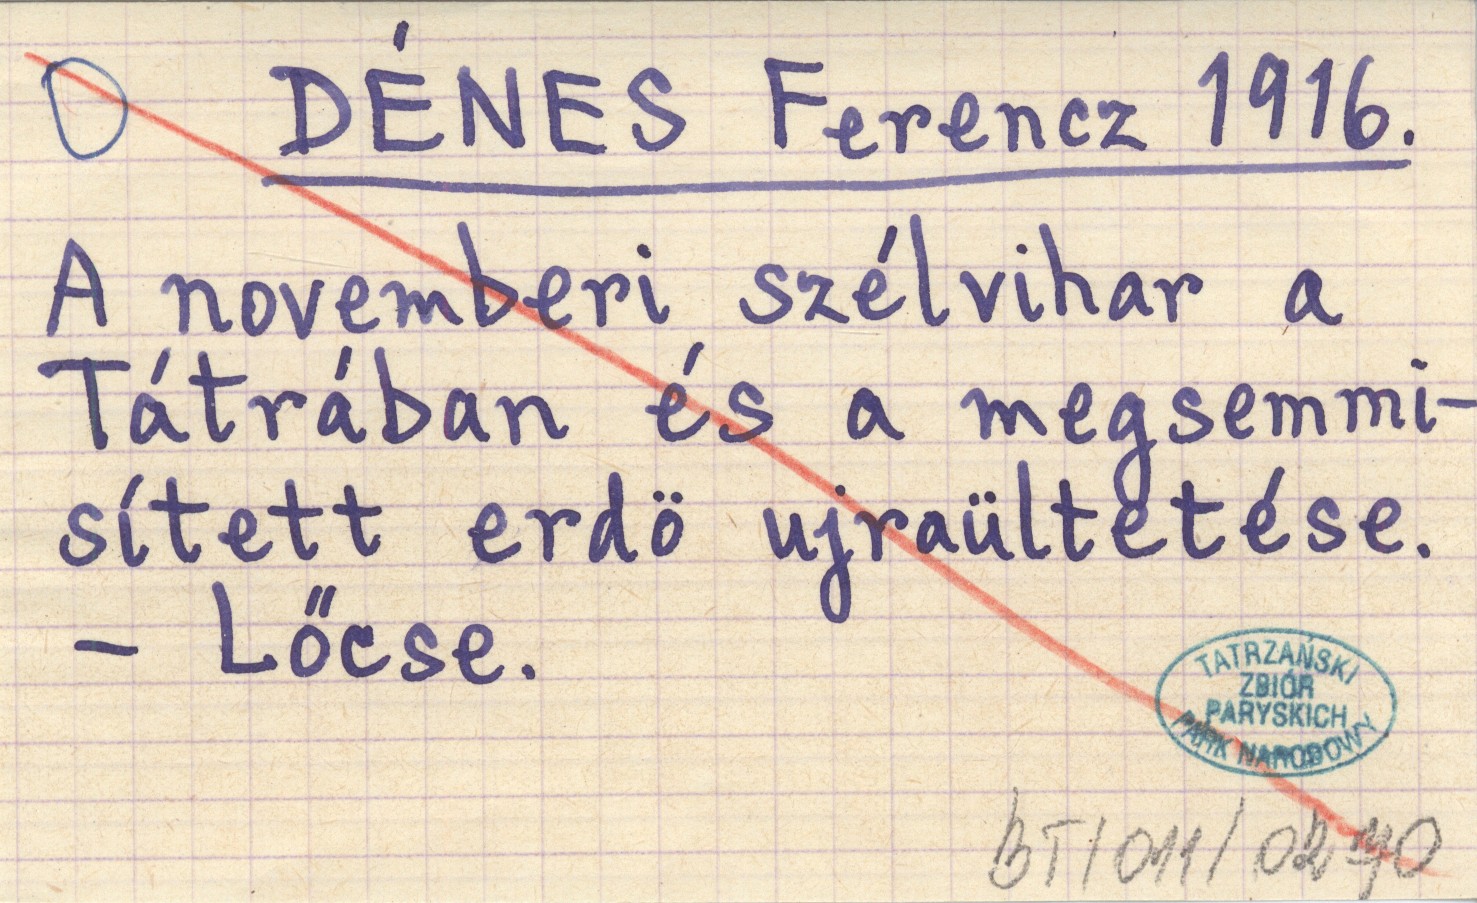 DÉNES Ferencz 1916.
A novemberi szélvihar a
Tátrában és a megsemmi-
sített erdö ujraültetése.
- Lőcse.
TATRZAŃSKI
ZBIÓR
PARYSKICH
PARK NARODOWY
BT/011/